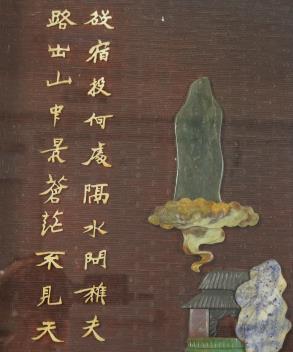 欲宿投何處隔水問樵夫
路出山中景蒼茫不見天